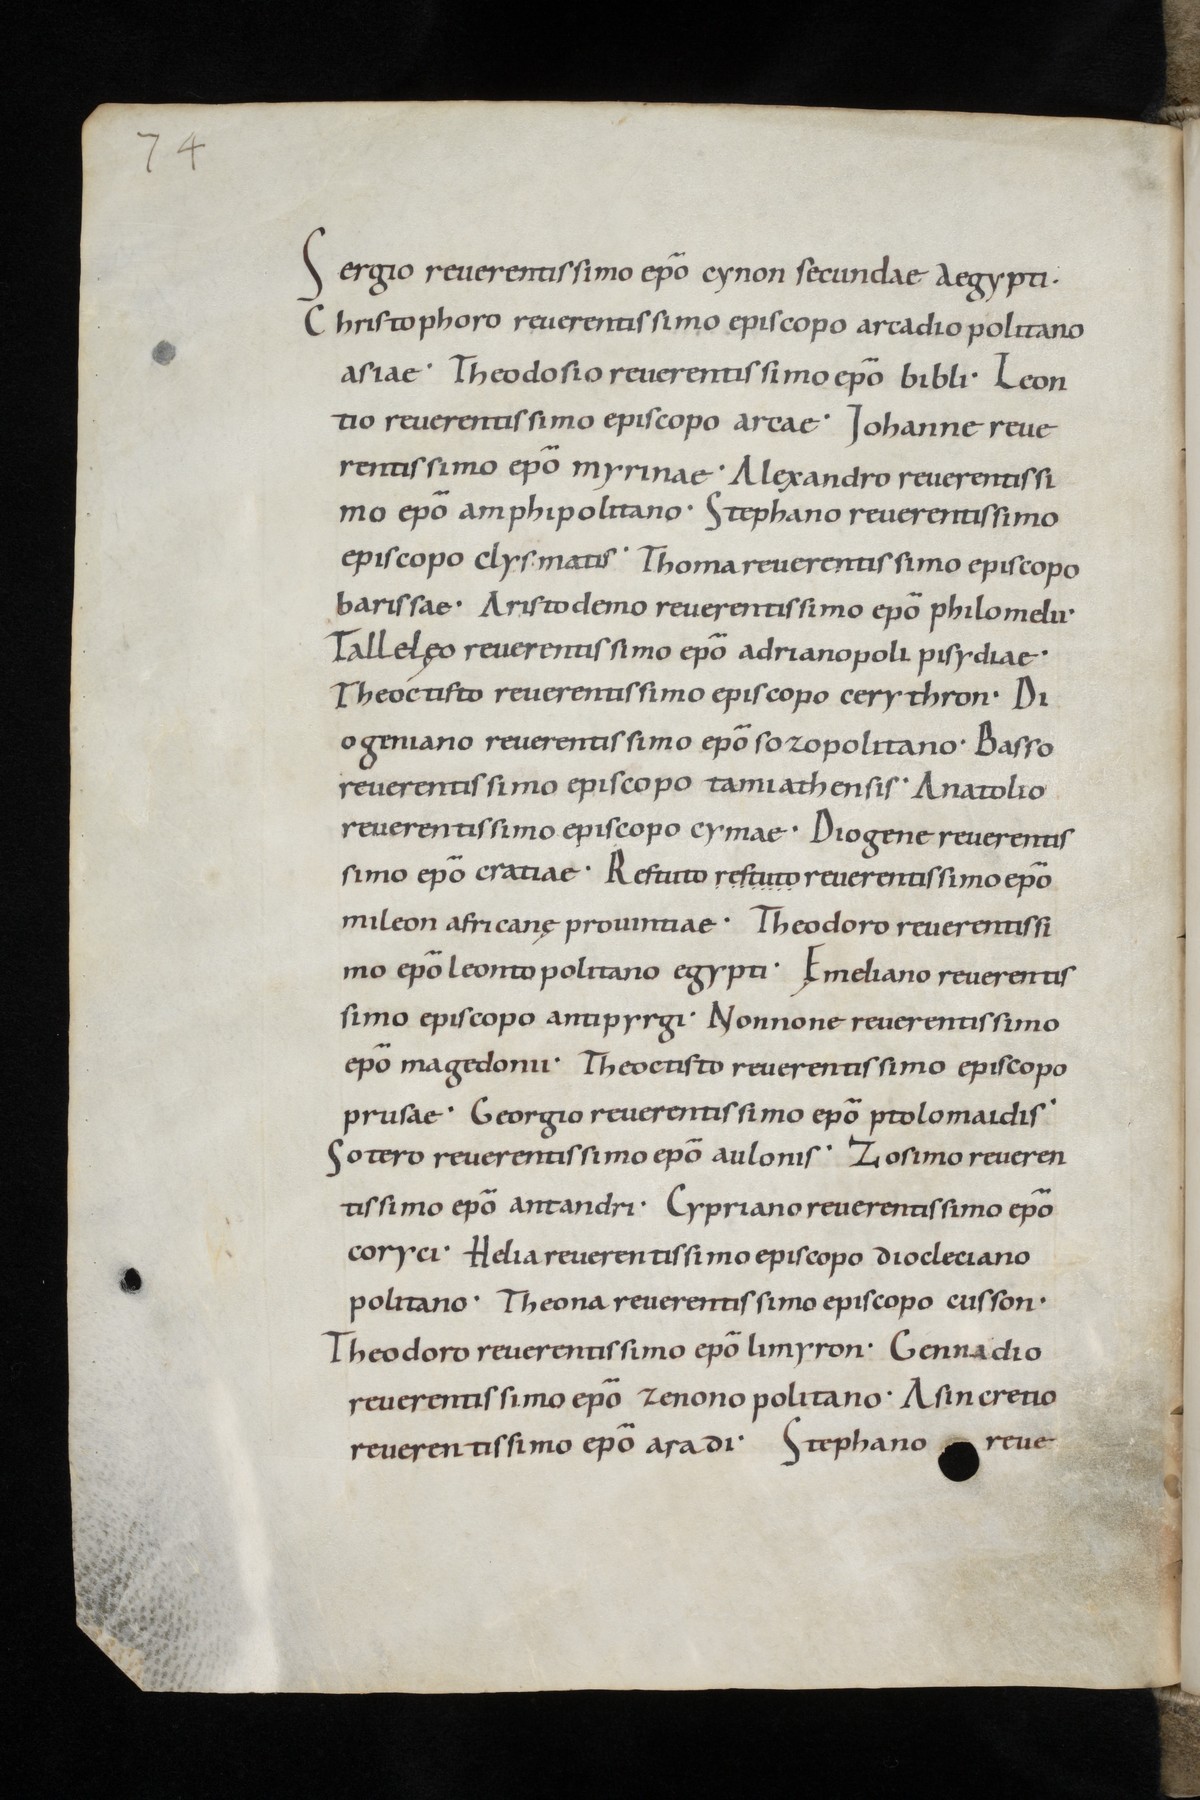 74
Sergio reuerentissimo ep̃o cynon secundae Aegypti·
Christophoro reuerentissimo episcopo arcadiopolitano
asiae· Theodosio reuerentissimo ep̃o bibli· Leon
tio reuerentissimo episcopo arcae· Johanne reue
rentissimo ep̃o myrinae· Alexandro reuerentissi
mo ep̃o amphipolitano· Stephano reuerentissimo
episcopo clysmatis· Thoma reuerentissimo episcopo
barissae· Aristodemo reuerentissimo ep̃o philomelii·
Talleleo reuerentissimo ep̃o adrianopoli pisydiae·
Theoctisto reuerentissimo episcopo cerythron· Di
ogeniano reuerentissimo ep̃o sozopolitano· Basso
reuerentissimo episcopo tamiathensis· Anatolio
reuerentissimo episcopo cymae· Diogene reuerentis
simo ep̃o cratiae· Restuto restuto reuerentissimo ep̃o
mileon africanę prouintiae· Theodoro reuerentissi
mo ep̃o leontopolitano egypti· Ęmeliano reuerentis
simo episcopo antipyrgi· Nonnone reuerentissimo
ep̃o magedonii· Theoctisto reuerentissimo episcopo
prusae· Georgio reuerentissimo ep̃o ptolomaidis·
Sotero reuerentissimo ep̃o aulonis· Zosimo reueren
tissimo ep̃o antandri· Cypriano reuerentissimo ep̃o
coryci· Helia reuerentissimo episcopo diocleciano
politano· Theona reuerentissimo episcopo cusson·
Theodoro reuerentissimo ep̃o limyron· Gennadio
reuerentissimo ep̃o zenonopolitano· Asincretio
reuerentissimo ep̃o aradi· Stephano reue